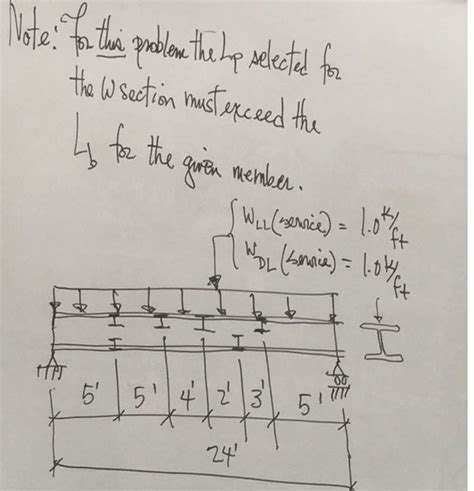 Note: For this problem the Lp selected for
the W section must exceed the
Lb for the given member.
WLL (service) = 1.0 K/ft
WDL (service) = 1.0 K/ft
5' 5' 4' 2' 3' 5'
24'